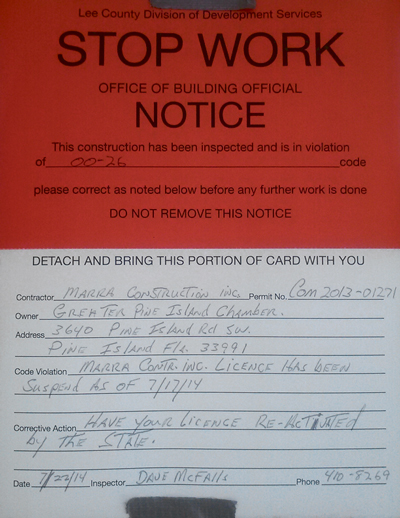 Lee County Division of Development Services
STOP WORK
OFFICE OF BUILDING OFFICIAL
NOTICE
This construction has been inspected and is in violation
of 00-26 code
please correct as noted below before any further work is done
DO NOT REMOVE THIS NOTICE
DETACH AND BRING THIS PORTION OF CARD WITH YOU
Contractor MARRA CONSTRUCTION INC. Permit No. COM 2013-01271
Owner GREATER PINE ISLAND CHAMBER.
Address 3640 PINE ISLAND RD SW.
PINE ISLAND Fla. 33991
Code Violation MARRA CONTR. INC. LICENCE HAS BEEN
SUSPEND AS OF 7/17/14
Corrective Action HAVE YOUR LICENCE RE-ACTIVATED
by THE STATE.
Date 7/22/14 Inspector DAVE McFAlls Phone 410-8269